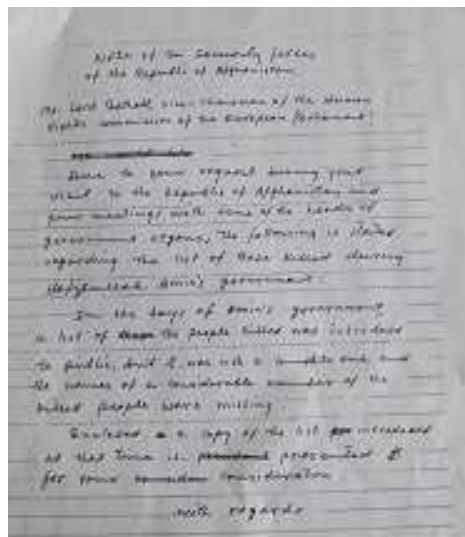 Note of the Security forces
of the Republic of Afghanistan
Mr. Lord Bethell vice-chairman of the Human
Rights commission of the European Parliament!
Due to your request during your
visit to the Republic of Afghanistan and
your meetings with some of the heads of
government organs, the following is stated
regarding the list of those killed during
Hafizullah Amin's government:
In the days of Amin's government
a list of the people killed was introduced
to public, but it was not a complete one and
the names of a considerable number of the
killed people were missing.
Enclosed a copy of the list introduced
at that time is presented
for your consideration
with regards